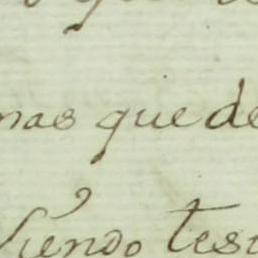 nas que de
siendo tes